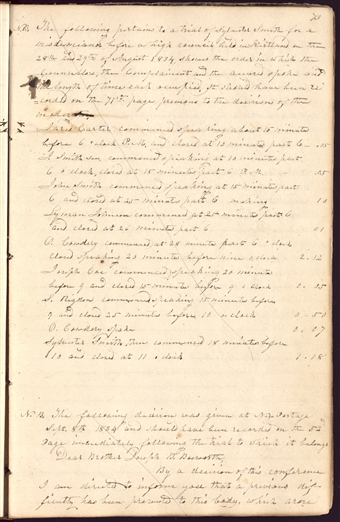 N.B. The following pertains to a trial of Sylvester Smith for a
misdemeanor before a high council held in Kirtland on the
28th and 29th of August 1834 shows the order in which the
Councellors, then Complainant and the accused spoke and
the length of time each occupied, It should have been re
corded on the 71st page previous to the decision of the
Jared Carter commenced speaking about 15 minutes
before 6 o'clock P.M. and closed at 10 minutes past 6 .15
commenced speaking at 10 minutes past
6 o'clock, closed at 15 minutes past 6 P.M. .05
John Smith commenced speaking at 15 minutes past
6 and closed at 25 minutes past 6 making 10
Lyman Johnson commenced at 25 minutes past 6
and closed at 26 minutes past 6 01
O. Cowdery commenced at 28 minutes past 6 o'clock
closed speaking 20 minutes before nine o'clock 2.12
Joseph Coe commenced speaking 20 minutes
before 9 and closed 15 minutes before 9 o'clock 0.05
S. Rigdon commenced speaking 15 minutes before
9 and closed 25 minutes before 10 o'clock 0.50
O. Cowdery spoke 0.07
Sylvester Smith then commenced 18 minutes before
10 and closed at 11 o'clock 1.18
N.B. The following decision was given at New Portage
Sept. 8th 1834 and should have been recorded on the
Page immediately following the trial to which it belongs
Dear Brother Joseph H. Bosworth,
By a decision of this conference
I am directed to inform you that a previous dif
ficulty has been presented to this body, which arose